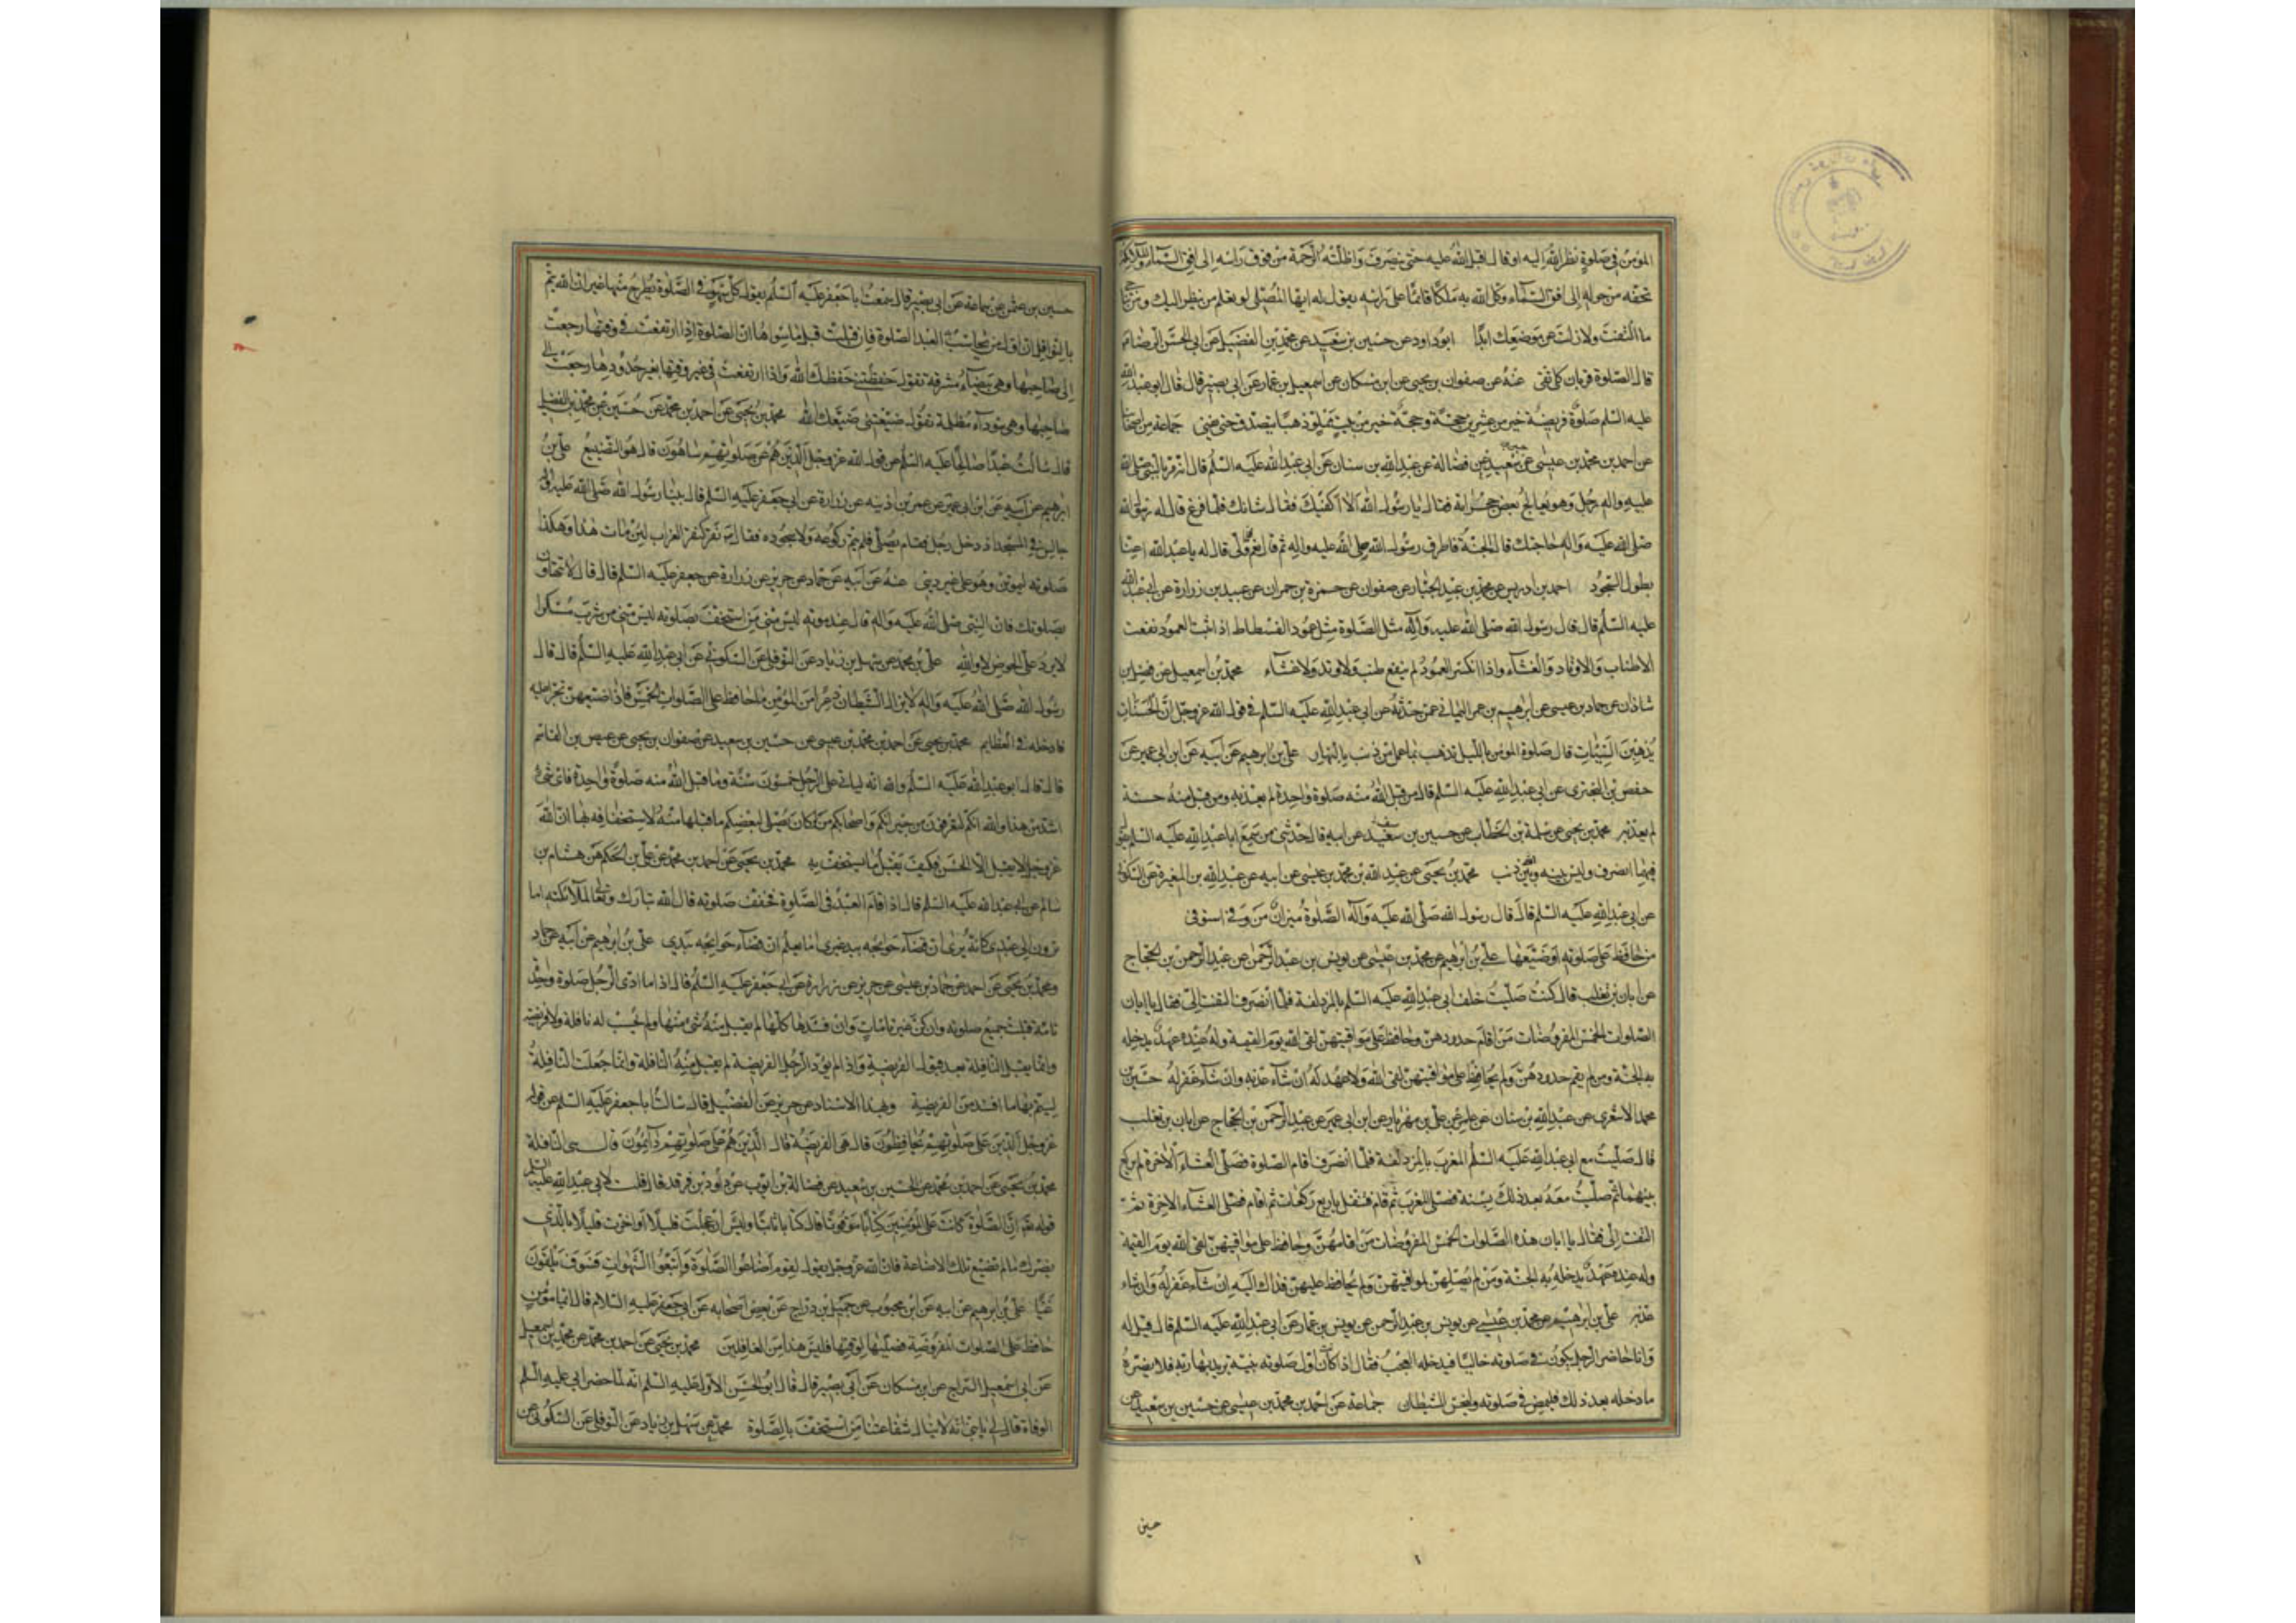 المؤمن في صلوة نظر الله اليه او قال اقبل الله عليه حتى ينصرف واظلته الرحمة من فوق راسه الى افق السماء والملائكة
تحفه من حوله الى افق السماء وكل الله به ملكا قائما على راسه يقول له ايها المصلى لو تعلم من ينظر اليك ومن تناجي
ما التفت ولا زلت عن موضعك ابدا ابو داود عن حسين بن سعيد عن محمد بن الفضيل عن ابي الحسن الرضا ع
قال الصلوة قربان كل تقى عنه عن صفوان بن يحيى عن ابن مسكان عن اسمعيل بن عمار عن ابي بصير قال قال ابو عبد الله
عليه السلم صلوة فريضة خير من عشرين حجة وحجة خير من بيت مملو ذهبا يتصدق حتى يفنى جماعة من اصحابنا
عن احمد بن محمد بن عيسى عن سعيد عن فضالة عن عبد الله بن سنان عن ابي عبد الله عليه السلم قال مر بالنبي صلى الله
عليه واله رجل وهو يعالج بعض حجراته فقال يا رسول الله الا اكفيك فقال شانك فلما فرغ قال له رسول الله
صلى الله عليه واله حاجتك قال الجنة فاطرق رسول الله صلى الله عليه واله ثم قال نعم فلما ولى قال له يا عبد الله اعنا
بطول السجود احمد بن ادريس عن محمد بن عبد الجبار عن صفوان عن حمزة بن حمران عن عبيد بن زرارة عن ابي عبد الله
عليه السلم قال قال رسول الله صلى الله عليه وآله مثل الصلوة مثل عمود الفسطاط اذا ثبت العمود نفعت
الاطناب والاوتاد والغشاء واذا انكسر العمود لم ينفع طنب ولا وتد ولا غشاء محمد بن اسمعيل عن فضل بن
شاذان عن حماد بن عيسى عن ابرهيم بن عمر اليماني عمن حدثه عن ابي عبد الله عليه السلم في قول الله عز وجل ان الحسنات
يذهبن السيئات قال صلوة المؤمن بالليل تذهب بما عمل من ذنب بالنهار علي بن ابرهيم عن ابيه عن ابن ابي عمير عن
حفص بن البختري عن ابي عبد الله عليه السلم قال من قبل الله منه صلوة واحدة لم يعذبه ومن قبل منه حسنة
لم يعذبه محمد بن يحيى عن سلمة بن الخطاب عن حسين بن سيف عن ابيه قال حدثني من سمع ابا عبد الله عليه السلم يقول
فيهما انصرف وليس بينه وبين الله ذنب محمد بن يحيى عن عبد الله بن محمد بن عيسى عن ابيه عن عبد الله بن المغيرة عن السكوني
عن ابي عبد الله عليه السلم قال قال رسول الله صلى الله عليه وآله الصلوة ميزان من وفى استوفى
من حافظ على صلوته او ضيعها علي بن ابرهيم عن محمد بن عيسى عن يونس بن عبد الرحمن عن عبد الرحمن بن الحجاج
عن ابان بن تغلب قال كنت صليت خلف ابي عبد الله عليه السلم بالمزدلفة فلما انصرف التفت الي فقال يا ابان
الصلوات الخمس المفروضات من اقام حدودهن وحافظ على مواقيتهن لقى الله يوم القيمة وله عنده عهد يدخله
به الجنة ومن لم يقم حدودهن ولم يحافظ على مواقيتهن لقى الله ولا عهد له ان شاء عذبه وان شاء غفر له حسين بن
محمد الاشعري عن عبد الله بن سنان عن عامر عن علي بن مهزيار عن ابن ابي عمير عن عبد الرحمن بن الحجاج عن ابان بن تغلب
قال صليت مع ابي عبد الله عليه السلم المغرب بالمزدلفة فلما انصرف اقام الصلوة فصلى العشاء الاخرة لم يركع
بينهما ثم صليت معه بعد ذلك بسنة فصلى المغرب ثم قام فتنفل باربع ركعات ثم اقام فصلى العشاء الاخرة ثم
التفت الى فقال يا ابان هذه الصلوات الخمس المفروضات من اقامهن وحافظ على مواقيتهن لقى الله يوم القيمة
وله عنده عهد يدخله به الجنة ومن لم يصلهن لمواقيتهن ولم يحافظ عليهن فذاك اليه ان شاء غفر له وان شاء
عذبه علي بن ابرهيم عن محمد بن عيسى عن يونس بن عبد الرحمن عن يونس بن عمار عن ابي عبد الله عليه السلم قال قيل له
وانا حاضر الرجل يكون في صلوته خاليا فيدخله العجب فقال اذا كان اول صلوته بنية يريد بها ربه فلا يضره
ما دخله بعد ذلك فليمض في صلوته وليخس الشيطان جماعة عن احمد بن محمد بن عيسى عن حسين بن سعيد عن
حسين
حسين بن عثمن عن سماعة عن ابي بصير قال سمعت ابا جعفر عليه السلم يقول كل سهو في الصلوة يطرح منها غير ان الله يتم
بالنوافل ان اول ما يحاسب به العبد الصلوة فان قبلت قبل ما سواها ان الصلوة اذا ارتفعت في وقتها رجعت
الى صاحبها وهي بيضاء مشرقة تقول حفظتني حفظك الله واذا ارتفعت في غير وقتها بغير حدودها رجعت الى
صاحبها وهي سوداء مظلمة تقول ضيعتني ضيعك الله محمد بن يحيى عن احمد بن محمد عن حسين عن محمد بن الفضيل
قال سالت عبدا صالحا عليه السلم عن قول الله عز وجل الذين هم عن صلوتهم ساهون قال هو التضييع علي بن
ابرهيم عن ابيه عن ابن ابي عمير عن عمر بن اذينه عن زرارة عن ابي جعفر عليه السلم قال بينا رسول الله صلى الله عليه واله
جالس في المسجد اذ دخل رجل فقام يصلى فلم يتم ركوعه ولا سجوده فقال ص نقر كنقر الغراب لئن مات هذا وهكذا
صلوته ليموتن وهو على غير ديني عنه عن ابيه عن حماد عن حريز عن زرارة عن جعفر عليه السلم قال قال لا تتهاون
بصلوتك فان النبي صلى الله عليه واله قال عند موته ليس مني من استخف بصلوته ليس مني من شرب مسكرا
لا يرد على الحوض لا والله علي بن محمد عن سهل بن زياد عن النوفلي عن السكوني عن ابي عبد الله عليه السلم قال قال
رسول الله صلى الله عليه واله لا يزال الشيطان ذعرا من المؤمن ما حافظ على الصلوات الخمس فاذا ضيعهن تجرا عليه
فادخله في العظايم محمد بن يحيى عن احمد بن محمد بن عيسى عن حسين بن سعيد عن صفوان بن يحيى عن عيص بن القاسم
قال قال ابو عبد الله عليه السلم والله انه لياتي على الرجل خمسون سنة وما قبل الله منه صلوة واحدة فاى شيء
اشد من هذا والله انكم لتعرفون من جيرانكم واصحابكم من لو كان يصلى لبعضكم ما قبلها منه لاستخفافه بها ان الله
عز وجل لا يقبل الا الحسن فكيف يقبل ما يستخف به محمد بن يحيى عن احمد بن محمد عن علي بن الحكم عن هشام بن
سالم عن ابي عبد الله عليه السلم قال اذا قام العبد في الصلوة فخفف صلوته قال الله تبارك وتعالى لملائكته اما
ترون الى عبدي كانه يرى ان قضاء حوائجه بيد غيري اما يعلم ان قضاء حوائجه بيدي علي بن ابرهيم عن ابيه عن حماد
ومحمد بن يحيى عن احمد عن حماد بن عيسى عن حريز عن زرارة عن ابي جعفر عليه السلم قال اذا ما ادى الرجل صلوة واحدة
تامة قبلت جميع صلوته وان كن غير تامات وان افسدها كلها لم يقبل منه شئ منها ولم يحسب له نافلة ولا فريضة
وانما يقبل النافلة بعد قبول الفريضة واذا لم يؤد الرجل الفريضة لم يقبل منه النافلة وانما جعلت النافلة
ليتم بها ما افسد من الفريضة وبهذا الاسناد عن حريز عن الفضيل قال سالت ابا جعفر عليه السلم عن قول
عز وجل الذين على صلوتهم يحافظون قال هى الفريضة قال الذين هم على صلوتهم دائمون قال هي النافلة
محمد بن يحيى عن احمد بن محمد عن الحسين بن سعيد عن فضالة بن ايوب عن داود بن فرقد قال قلت لابي عبد الله عليه السلم
قوله تع ان الصلوة كانت على المؤمنين كتابا موقوتا قال كتابا ثابتا وليس ان عجلت قليلا او اخرت قليلا بالذي
يضرك ما لم تضيع تلك الاضاعة فان الله عز وجل يقول لقوم اضاعوا الصلوة واتبعوا الشهوات فسوف يلقون
غيا علي بن ابرهيم عن ابيه عن ابن محبوب عن جميل بن دراج عن بعض اصحابه عن ابي جعفر عليه السلام قال ايما مؤمن
حافظ على الصلوات المفروضة فصلاها لوقتها فليس هذا من الغافلين محمد بن يحيى عن احمد بن محمد عن محمد بن اسمعيل
عن ابي اسمعيل السراج عن ابن مسكان عن ابي بصير قال قال ابو الحسن الاول عليه السلم انه لما حضر ابي عليه السلم
الوفاة قال لي يا بني انه لا ينال شفاعتنا من استخف بالصلوة محمد عن سهل بن زياد عن النوفلي عن السكوني عن